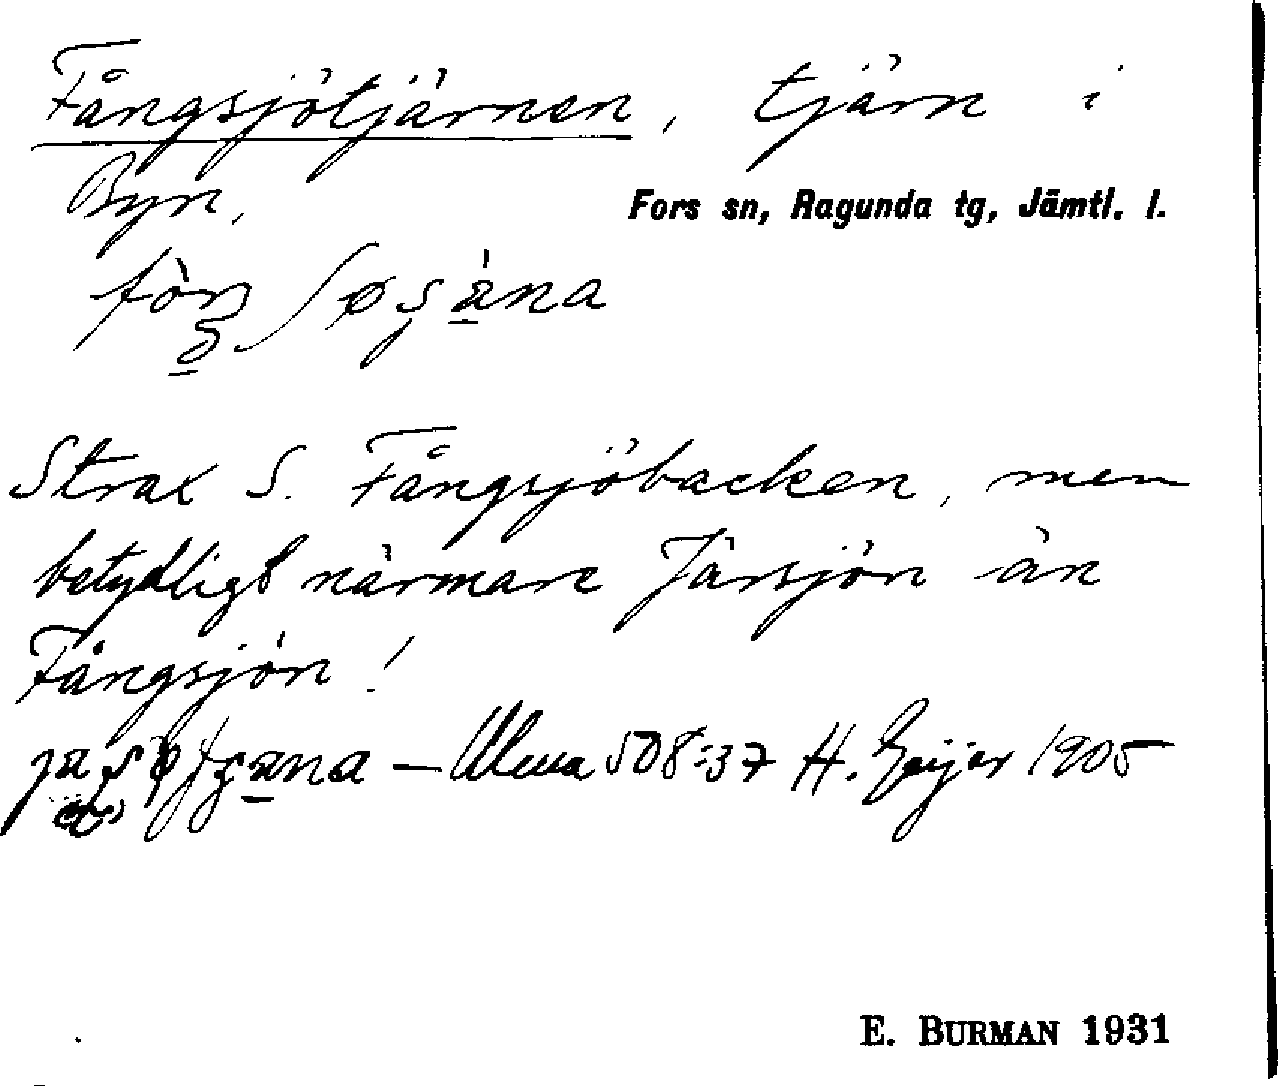 Fångsjötjärnen, tjärn i
Byn.
Fors sn, Ragunda tg, Jämtl. l.
Strax S. Fångsjöbacken, men
betydligt närmare Jänsjön än
Fångsjön!
— Ulma 508:37 H. Geijer 1905
E. BURMAN 1931